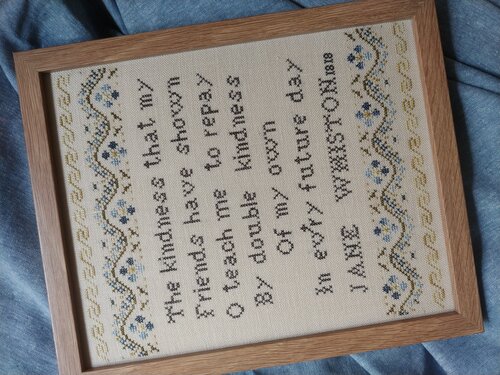 The kindness that my
Friends have shown
O teach me to repay
By double kindness
Of my own
In ev'ry future day
JANE WHISTON 1818